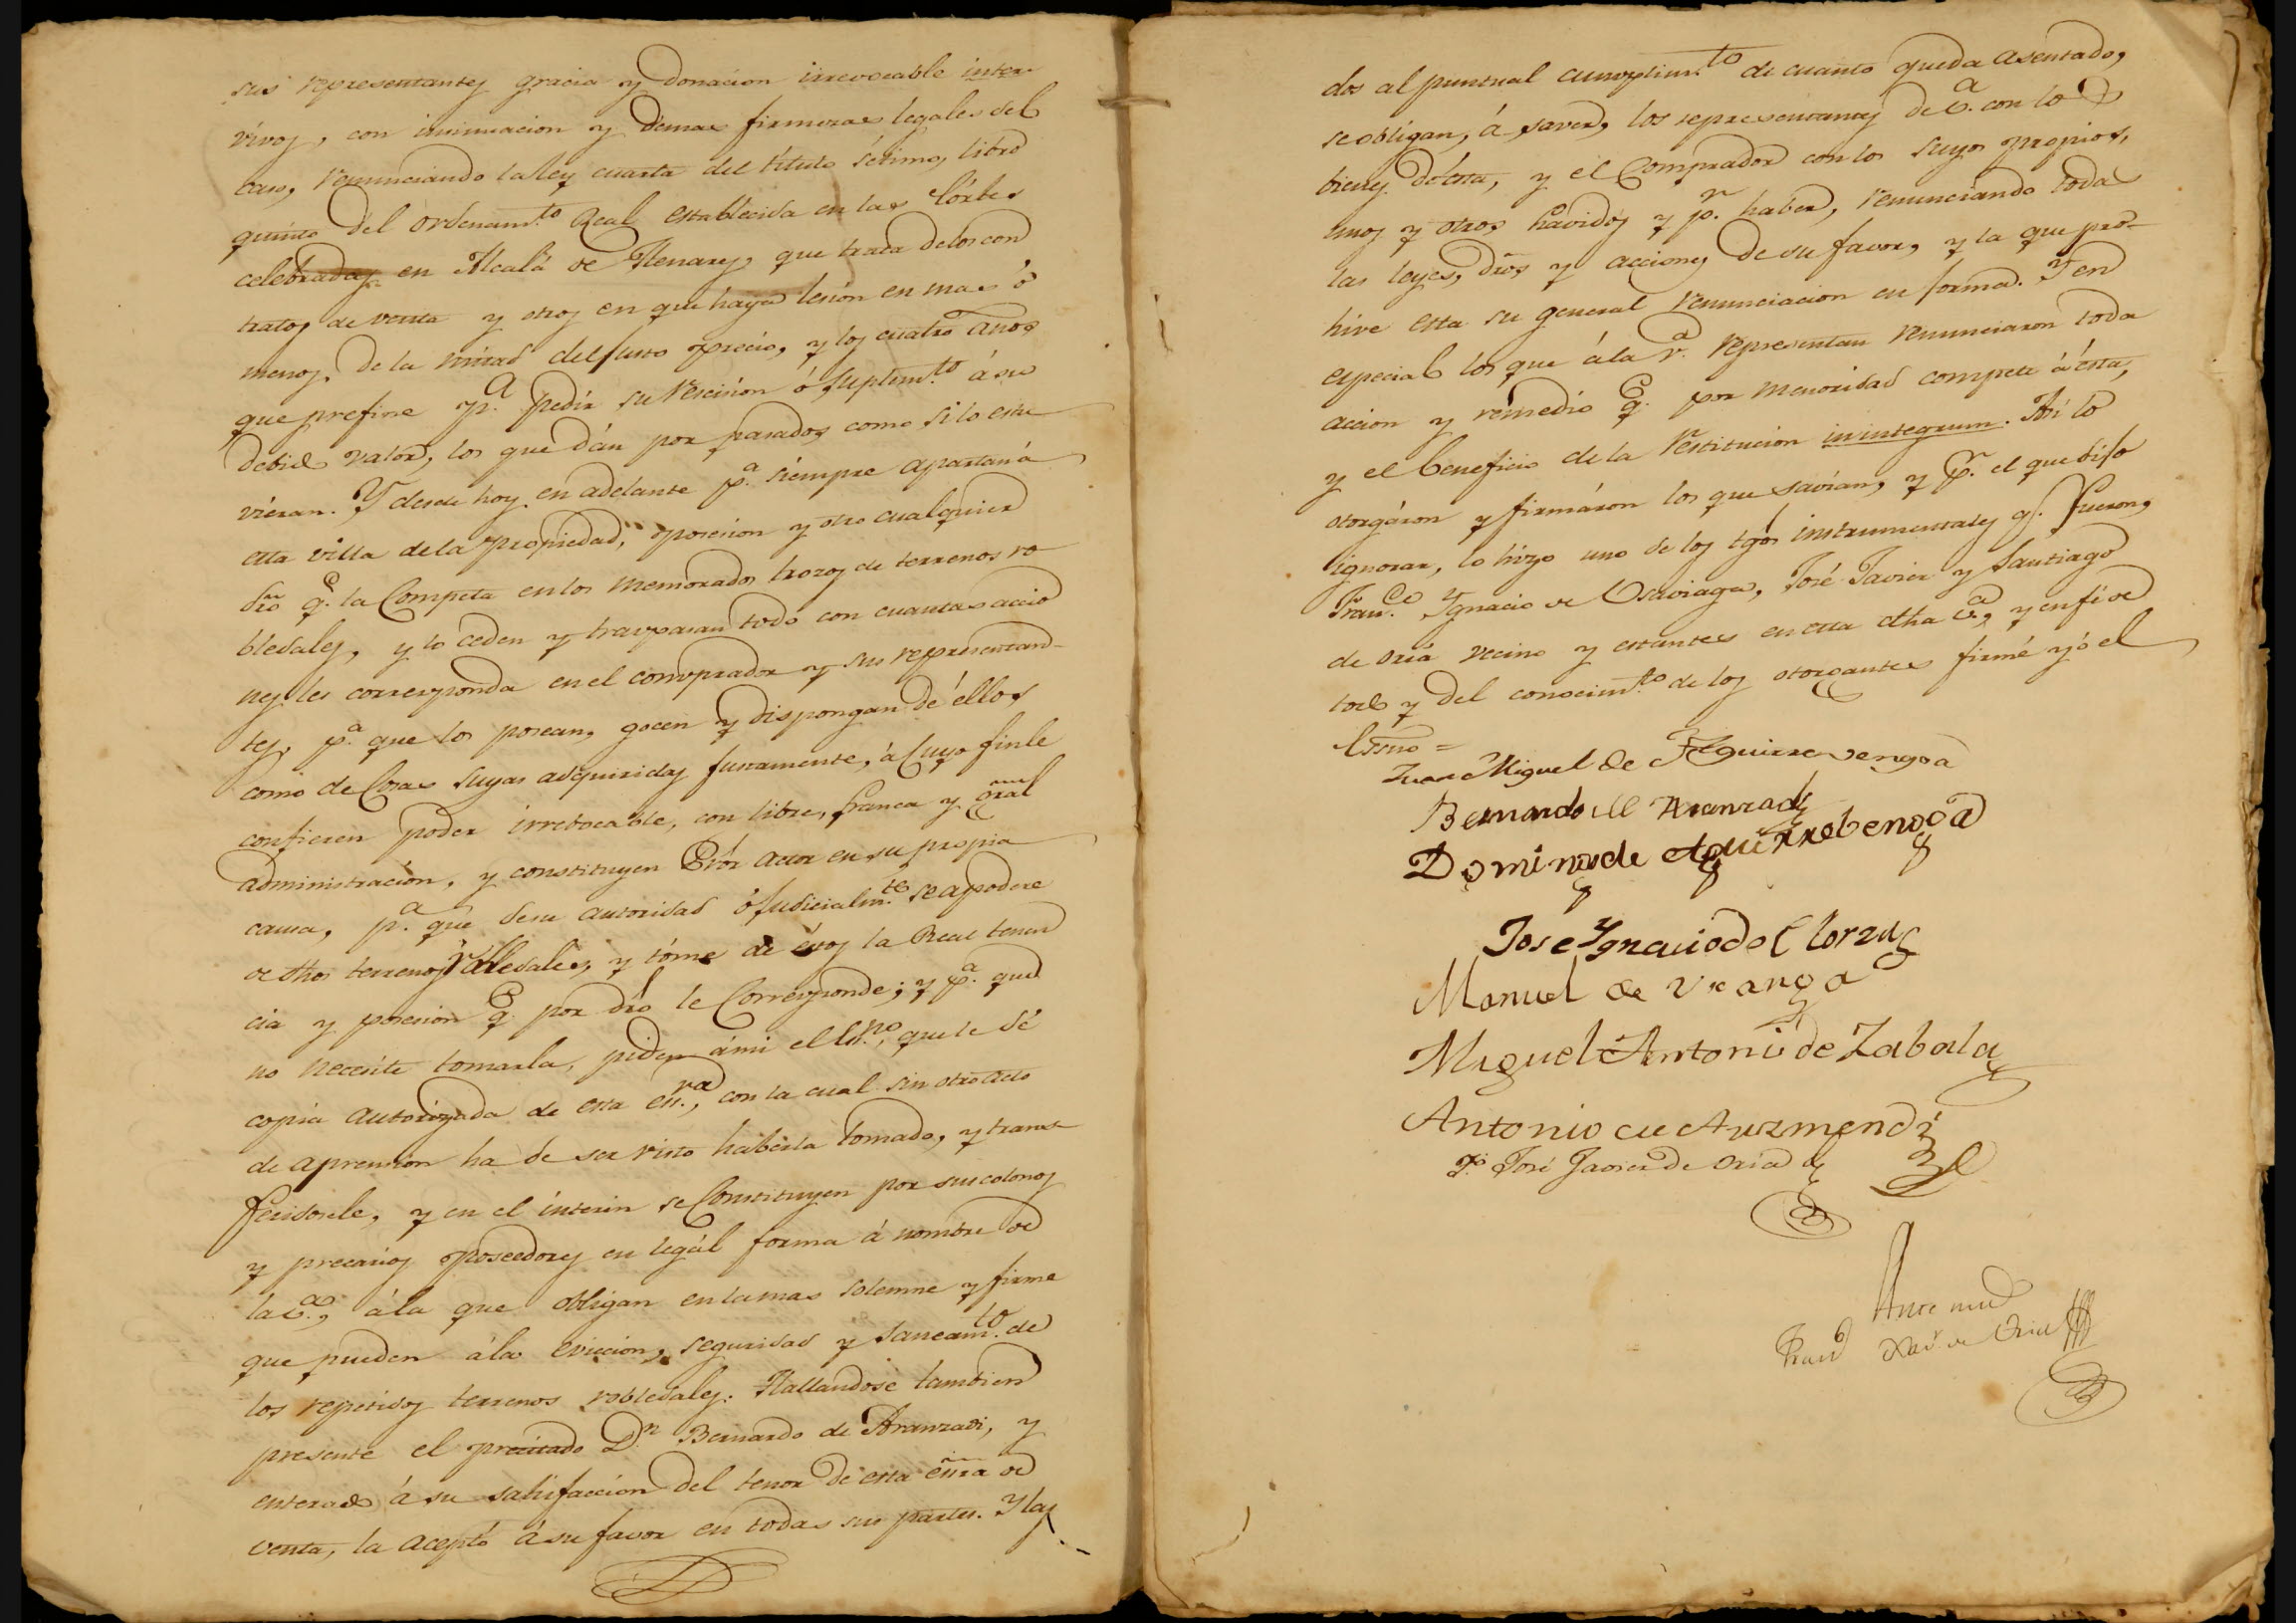 sus representantes gracia y donacion irrevocable inter-
vivos, con insinuacion y demas firmezas legales del
caso, renunciando la ley cuarta del titulo setimo, libro
quinto del ordenam.to Real establecida en las Córtes
celebradas en Alcalá de Henares, que trata de los con
tratos de venta y otros en que haya lesion en mas ó
menos de la mitad del justo precio, y los cuatro años
que prefine p.a pedir su rescision ó suplem.to á su
debido valor, los que dán por pasados como si lo estu
vieran. Y desde hoy en adelante p.a siempre apartan á
esta villa de la propiedad, posesion y otro cualquier
dro q.e la Competa en los memorados trozos de terrenos ro
bledales, y lo ceden y traspasan todo con cuantas accio
nes les corresponda en el comprador y sus representan-
tes, p.a que los posean, gocen y dispongan de éllos
como de Cosas suyas adquiridas justamente, á Cuyo fin le
confieren poder irrebocable, con libre, franca y gral
administracion, y constituyen Prõr actor en su propia
causa, p.a que de su autoridad ó judicialm.te se apodere
de dhos terrenos robledales, y tóme de éllos la Real tenen
cia y posesion q.e por dro le Corresponde; y p.a que
no necesite tomarla, piden á mi el Es.no, que le dé
copia autorizada de esta es.ra, con la cual sin otro acto
de aprension ha de ser visto haberla tomado, y trans
feridosele, y en el interin se Constituyen por sus colonos
y precarios poseedores en legál forma á nombre de
la V.a, á la que obligan en la mas solemne y firme
que pueden á la eviccion, seguridad y saneam.to de
los repetidos terrenos robledales. Hallandose tambien
presente el precitado D.n Bernardo de Aranzadi, y
enterado á su satisfaccion del tenor de esta esɾ̃ra de
venta, la aceptó á su favor en todas sus partes. Y las
dos al puntual cumplim.to de cuanto queda asentado,
se obligan, á saver, los representantes de V.a con los
bienes de ésta, y el Comprador con los suyos propios,
unos y otros havidos y p.r haber, renunciando todas
las leyes, dros y acciones de su favor, y la que pro-
hive esta su general renunciacion en forma. Y en
especial los que á la V.a representan renunciaron toda
accion y remedio q.e por menoridad compete á ésta,
y el beneficio de la restitucion in integrum. Asi lo
otorgáron y firmáron los que savían, y p.r el que dijo
ignorar, lo hizo uno de los tgos instrumentales q.e fueron,
Fran.co Ygnacio de Usabiaga, José Javier y Santiago
de Oria vecino y estantes en esta dha V.a, y en fé de
todo y del conocim.to de los otorgantes firmé yo el
Esno =
Juan Miguel de Aguirrevengoa
Bernardo de Aranzadi
Domingo de Aguirrebengoa
Jose Ygnacio de Elorza
Manuel de Vranga
Miguel Antonio de Zabala
Antonio de Auzmendi
T.o José Javier de Oria
Ante mi
Fran.co Xav.r de Oria